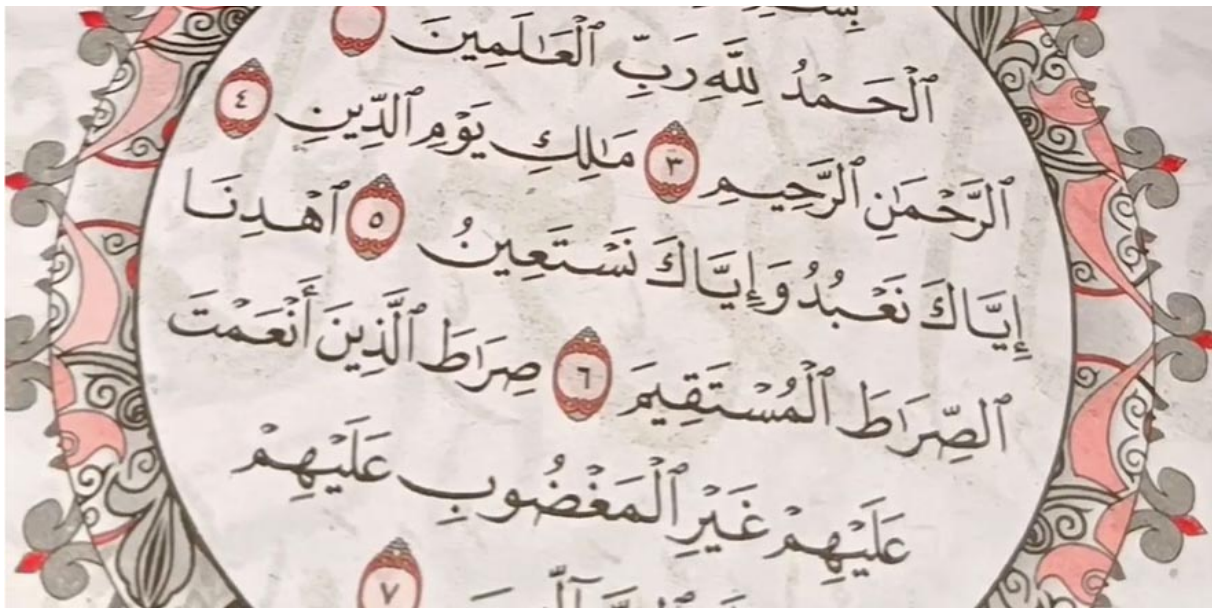 ٱلْحَمْدُ لِلَّهِ رَبِّ ٱلْعَٰلَمِينَ
ٱلرَّحْمَٰنِ ٱلرَّحِيمِ ٣ مَٰلِكِ يَوْمِ ٱلدِّينِ ٤
إِيَّاكَ نَعْبُدُ وَإِيَّاكَ نَسْتَعِينُ ٥ ٱهْدِنَا
ٱلصِّرَٰطَ ٱلْمُسْتَقِيمَ ٦ صِرَٰطَ ٱلَّذِينَ أَنْعَمْتَ
عَلَيْهِمْ غَيْرِ ٱلْمَغْضُوبِ عَلَيْهِمْ
٧